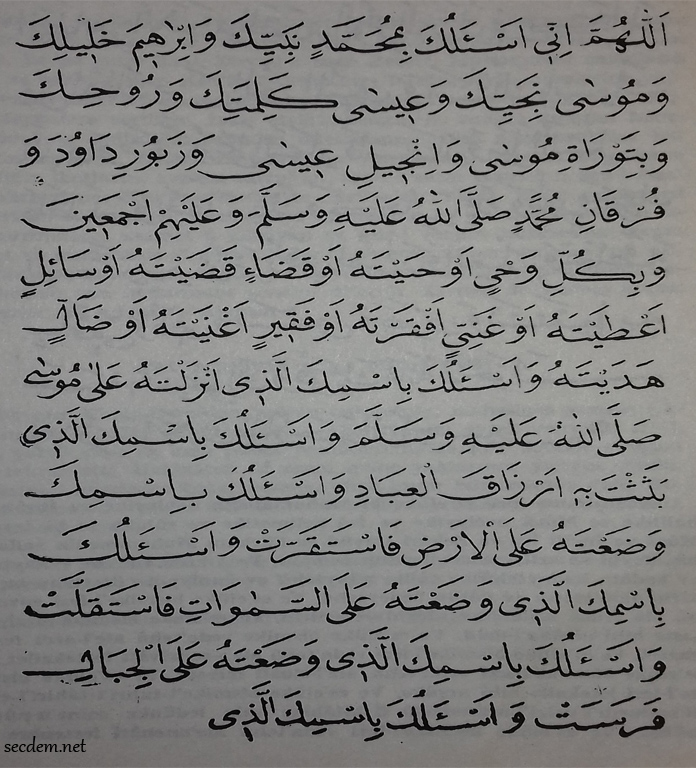 اَللّٰهُمَّ اِنّٖى اَسْئَلُكَ بِمُحَمَّدٍ نَبِيِّكَ وَاِبْرٰهٖيمَ خَلٖيلِكَ
وَمُوسٰى نَجِيِّكَ وَعٖيسٰى كَلِمَتِكَ وَرُوحِكَ
وَبِتَوْرَاةِ مُوسٰى وَاِنْجٖيلِ عٖيسٰى وَزَبُورِ دَاوُدَ وَ
فُرْقَانِ مُحَمَّدٍ صَلَّى اللّٰهُ عَلَيْهِ وَسَلَّمَ وَعَلَيْهِمْ اَجْمَعٖينَ
وَبِكُلِّ وَحْىٍ اَوْحَيْتَهُ اَوْ قَضَاءٍ قَضَيْتَهُ اَوْ سَائِلٍ
اَعْطَيْتَهُ اَوْ غَنِيٍّ اَفْقَرْتَهُ اَوْ فَقٖيرٍ اَغْنَيْتَهُ اَوْ ضَٓالٍّ
هَدَيْتَهُ وَاَسْئَلُكَ بِاسْمِكَ الَّذٖى اَنْزَلْتَهُ عَلٰى مُوسٰى
صَلَّى اللّٰهُ عَلَيْهِ وَسَلَّمَ وَاَسْئَلُكَ بِاسْمِكَ الَّذٖى
بَثَثْتَ بِهٖ اَرْزَاقَ الْعِبَادِ وَاَسْئَلُكَ بِاسْمِكَ
وَضَعْتَهُ عَلَى الْاَرْضِ فَاسْتَقَرَّتْ وَاَسْئَلُكَ
بِاسْمِكَ الَّذٖى وَضَعْتَهُ عَلَى السَّمٰوَاتِ فَاسْتَقَلَّتْ
وَاَسْئَلُكَ بِاسْمِكَ الَّذٖى وَضَعْتَهُ عَلَى الْجِبَالِ
فَرَسَتْ وَاَسْئَلُكَ بِاسْمِكَ الَّذٖى
secdem.net